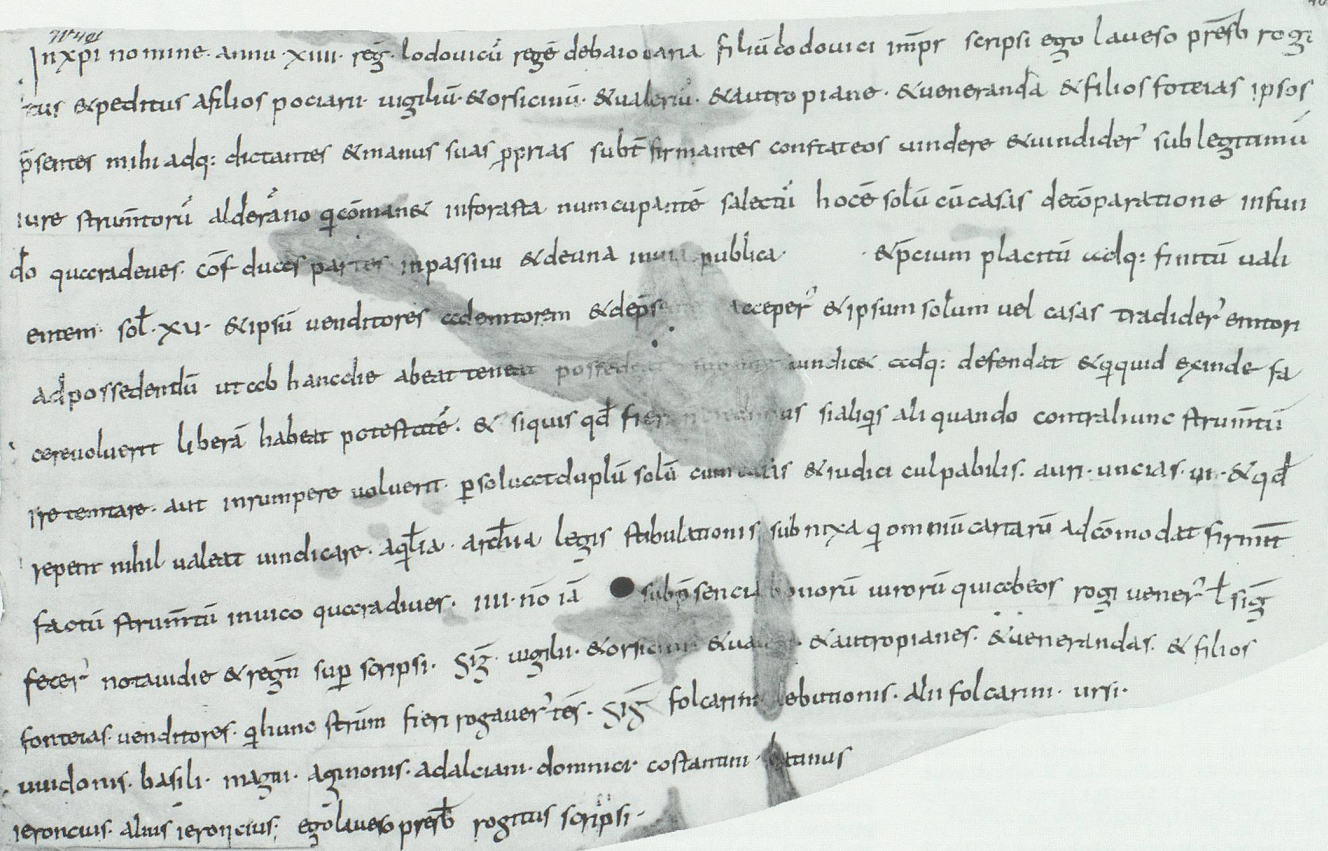 In xpi nomine · annu · xiiii · reg̅ · lodovicū regē debaiovaria filiū lodovici imp̅r scripsi ego laueso presb̅ rogi
tus & peditus afilios pociarii · uigiliū · & orsicinū · & ualeriū · & autropiane · & ueneranda & filios foteias ipsos
p̅sentes mihi adq: dictantes & manus suas p̅prias subt̅ firmantes constat eos uindere & uindider̅ sub legitimū
iure strum̅torū alderano qi cōman& inforasta numcupantē salectū hoc ē solū cū casas decōparatione infun
do quaradeues · cōf duces partes inpassiuu & deuna inuia publica · & p̅cium placitū adq: finitū uali
entem · sol̅ · xu · & ipsū venditores ademtorem & dep̅s acceper̅ & ipsum solum uel casas tradider̅ emtori
ad possedendū ut ab hancdie abeat teneat possedeat uindic& adq: defendat & q̅quid exinde fa
cereuoluerit liberā habeat potestatē · & siquis qd̅ fieri sialiqis aliquando contrahunc strum̅tū
ire temtare · aut inrumpere uoluerit · p̅soluat duplū solū cum casas & iudici culpabilis · auri · uncias · ui · & qd̅
repetit nihil ualeat uindicare · aql̅ia · arch̅ia legis stibulationis subnixa qi omniū cartarū adcōmodat firmit̅
factū strum̅tū inuico quaradiues · iiii · nō iā sub p̅sencia bonorū uirorū qui abeos rogi uener̅ t̅ sig̅
fecer̅ notauidie & regn̅ sup̅ scripsi · Sig̅ · uigilii · & orsicini & & autropianes · & uenerandas · & filios
fonteias · venditores · qi hunc strum̅ fieri rogauer̅ tēs · Sig̅ folcarini lebutionis · alii folcarini · ursi ·
uuidonis · basili · magni · aginonis · adalciani · dominici · costantini · latinus
ieroncius · alius ieroncius; ego laueso presb̅ rogitus scripsi ·